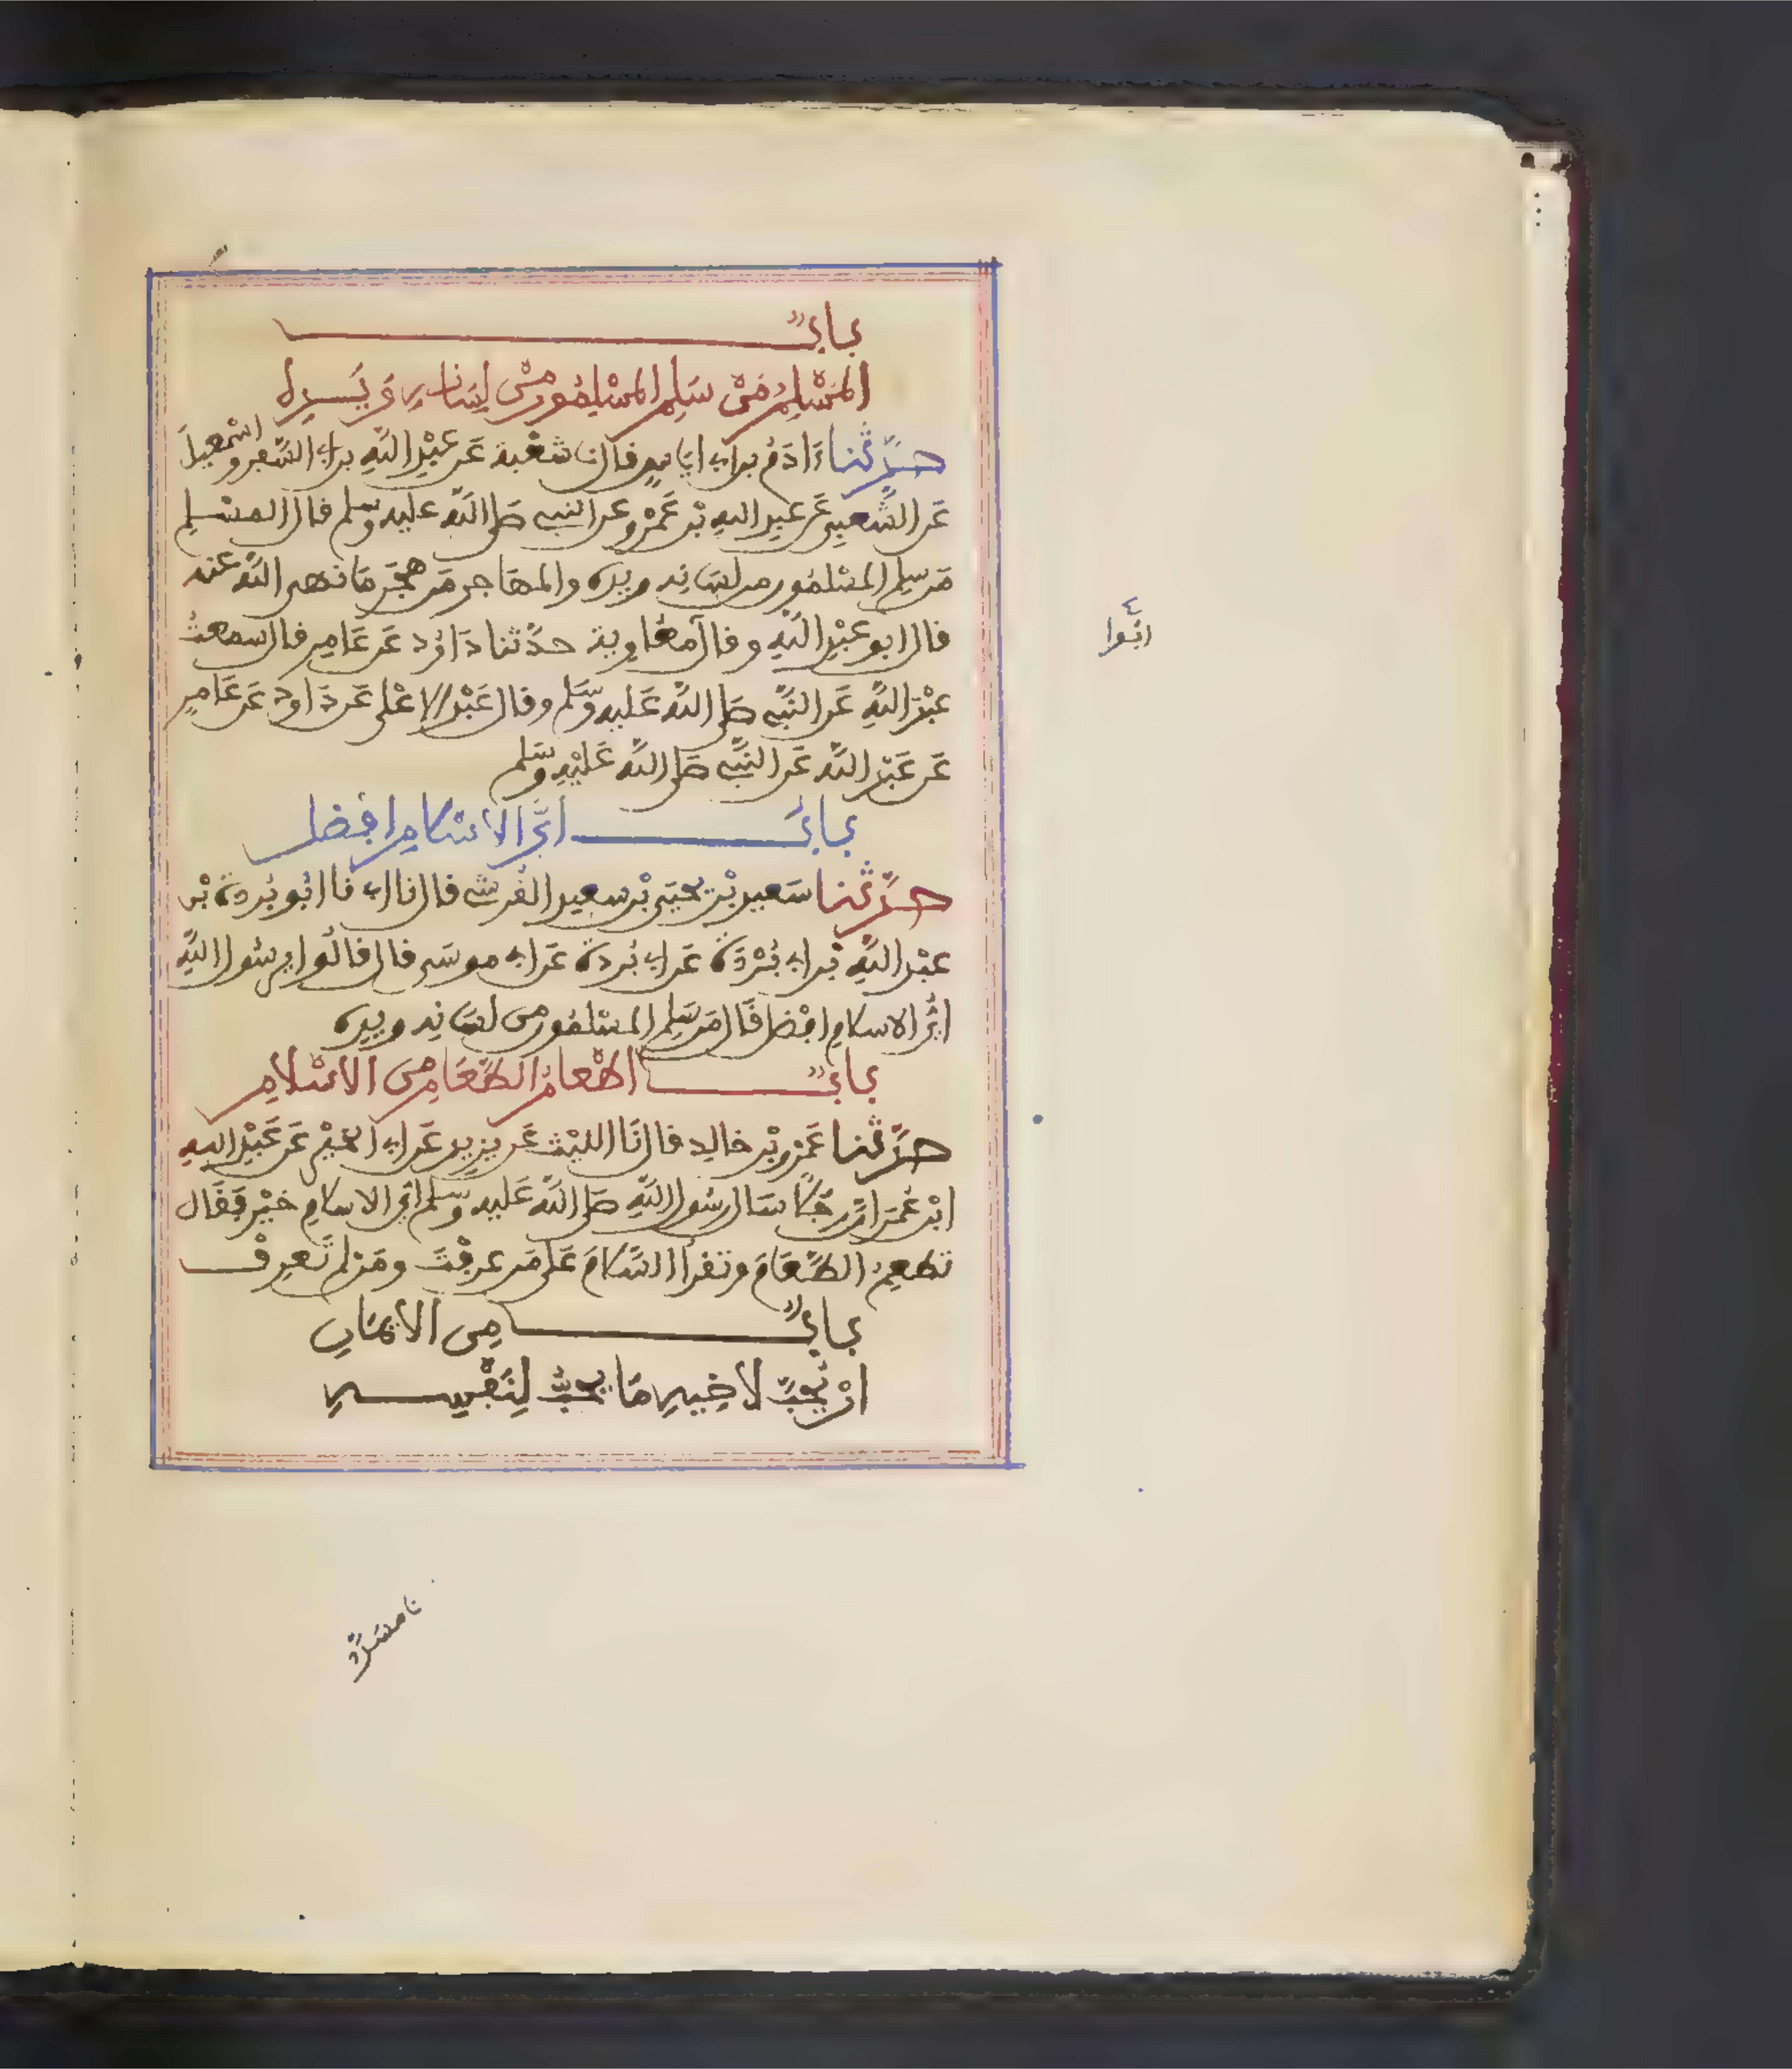 باب
المُسْلِمُ مَنْ سَلِمَ المسْلِمُون مِنْ لِسَانِهِ وَيَدِهِ
حدَّثنا ءَادَمُ بن ابي اياسٍ قال نا شعْبة عَن عَبْدِ اللّهِ بن ابي السَّفر واسْمعِيلَ
عَن الشَّعبِي عَن عبدِ اللهِ بْن عَمْرٍو عن النبي صَلى اللّه عليه وسلم قال المسْلِم
مَن سلِم المسْلمُون من لسَانِه ويدِه والمهَاجر مَن هجَر مَا نهى اللّه عنه
قال ابو عبْدِ اللّهِ وقال ابُوا مُعَاوية حدَّثنا دَاوُد عَن عَامِر قال سمعتُ
عبْدَ اللّهِ عَن النَّبي صَلى اللَّه عَليه وسَلم وقال عَبْد الاعْلى عَن دَاود عَن عَامِرٍ
عَن عَبْدِ اللّه عَن النَّبي صَلى اللَّه عَليْهِ وسَلم
باب اَيُّ الاسْلامِ افْضل
حدَّثنا سَعيد بْن يحيَى بْن سعِيد القُرشي قال نا ابي نا ابُو بُردة بْن
عبْد اللَّهِ بْن ابي بُرْدَة عَن ابي بُردة عَن ابي موسَى قال قالُوا يرسُول اللَّهِ
ايُّ الاسلامِ افْضل قَال مَن سَلِم المسْلمُون من لسَانِه ويدِه
باب اطْعامُ الطَّعَامِ مِن الاسْلامِ
حدَّثنا عَمْرو بْن خالِد قال نَا الليْث عَن يزيد عَن ابي الخيْرِ عَن عَبْدِ اللهِ
ابْن عُمَر انَّ رجُلًا سَال رسُول اللّهِ صَلى اللَّه عَليه وسَلم ايُّ الاسلامِ خيْر فَقَال
تطعِمُ الطَّعَامَ وتقرأ السَّلامَ عَلى مَن عرفْتَ ومَن لم تَعرِفْ
باب مِن الايمَانِ
انْ يُحِبَّ لاخِيهِ مَا يحبُّ لِنَفْسِهِ
نا مسَدَّد